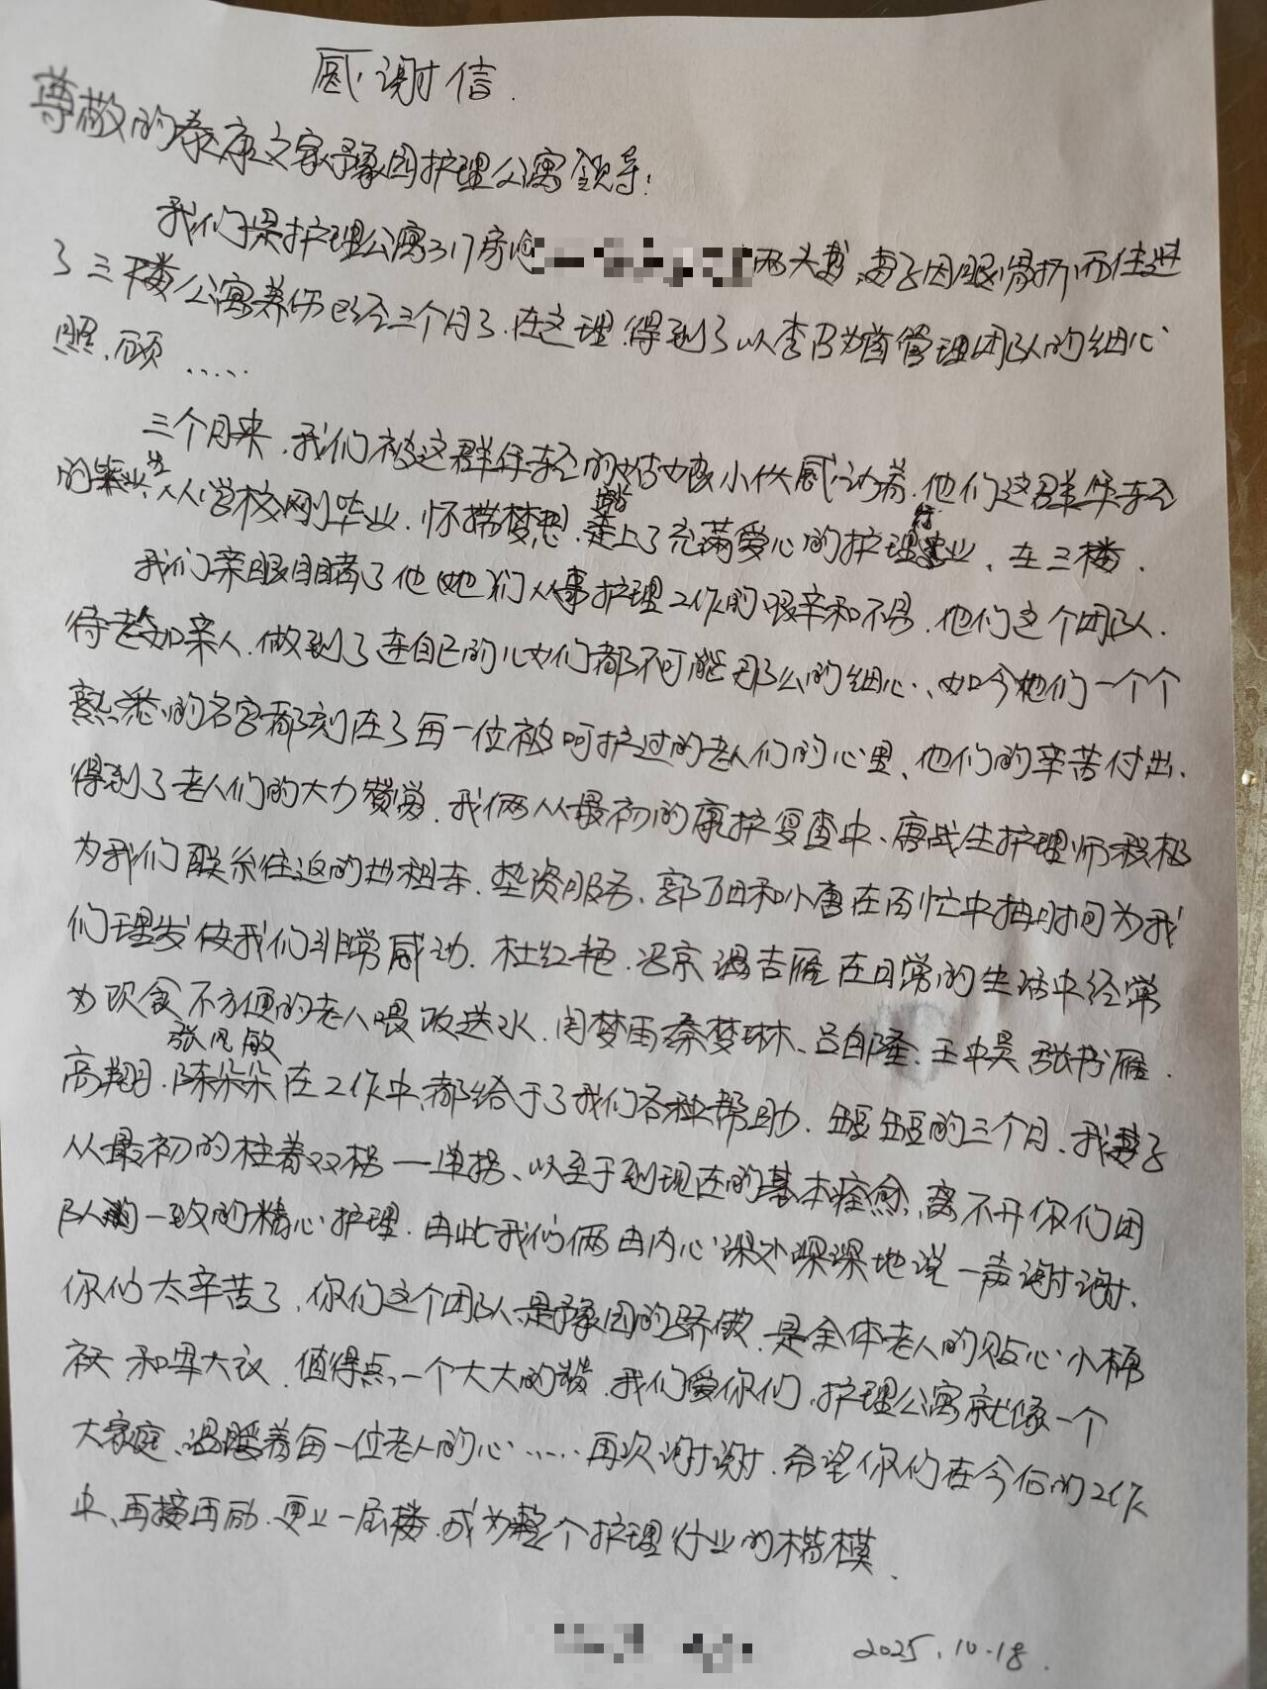 感谢信.
尊敬的泰康之家豫园护理公寓领导:
我们是护理公寓317房间两夫妻,妻子因腿骨折而住进
了三楼公寓养伤已经三个月了.在这理.得到了以李丹为首管理团队的细心
照顾.....
三个月来.我们被这群年轻的姑娘小伙感动着.他们这群年轻
的毕业生从学校刚毕业.怀揣梦想.踏上了充满爱心的护理行业、在三楼.
我们亲眼目睹了他(她)们从事护理工作的艰辛和不易.他们这个团队.
待老如亲人.做到了连自己的儿女们都不可能那么的细心、如今她们一个个
熟悉的名字都刻在了每一位被呵护过的老人们的心里、他们的辛苦付出.
得到了老人们的大力赞赏.我俩从最初的康护复查中、唐战生护理师积极
为我们联系往返的出租车.垫资服务、郭和小唐在百忙中抽时间为我
们理发使我们非常感动.杜红艳.冯京 吉雁在日常的生活中经常
为饮食不方便的老人喂饭送水.闫梦雨秦梦琳、吕自隆.王中昊 张书雁.
高翔.张凤敏 陈朵朵在工作中,都给于了我们各种帮助.短短的三个月.我妻子
从最初的柱着双拐——单拐、以至于到现在的基本痊愈,离不开你们团
队的一致的精心护理.由此我们俩由内心深处深深地说一声谢谢.
你们太辛苦了.你们这个团队是豫园的骄傲.是全体老人的贴心小棉
袄和军大衣.值得点一个大大的赞.我们爱你们.护理公寓就像一个
大家庭、温暖着每一位老人的心……再次谢谢.希望你们在今后的工作
中、再接再励.更上一层楼.成为整个护理行业的楷模.
2025.10.18.